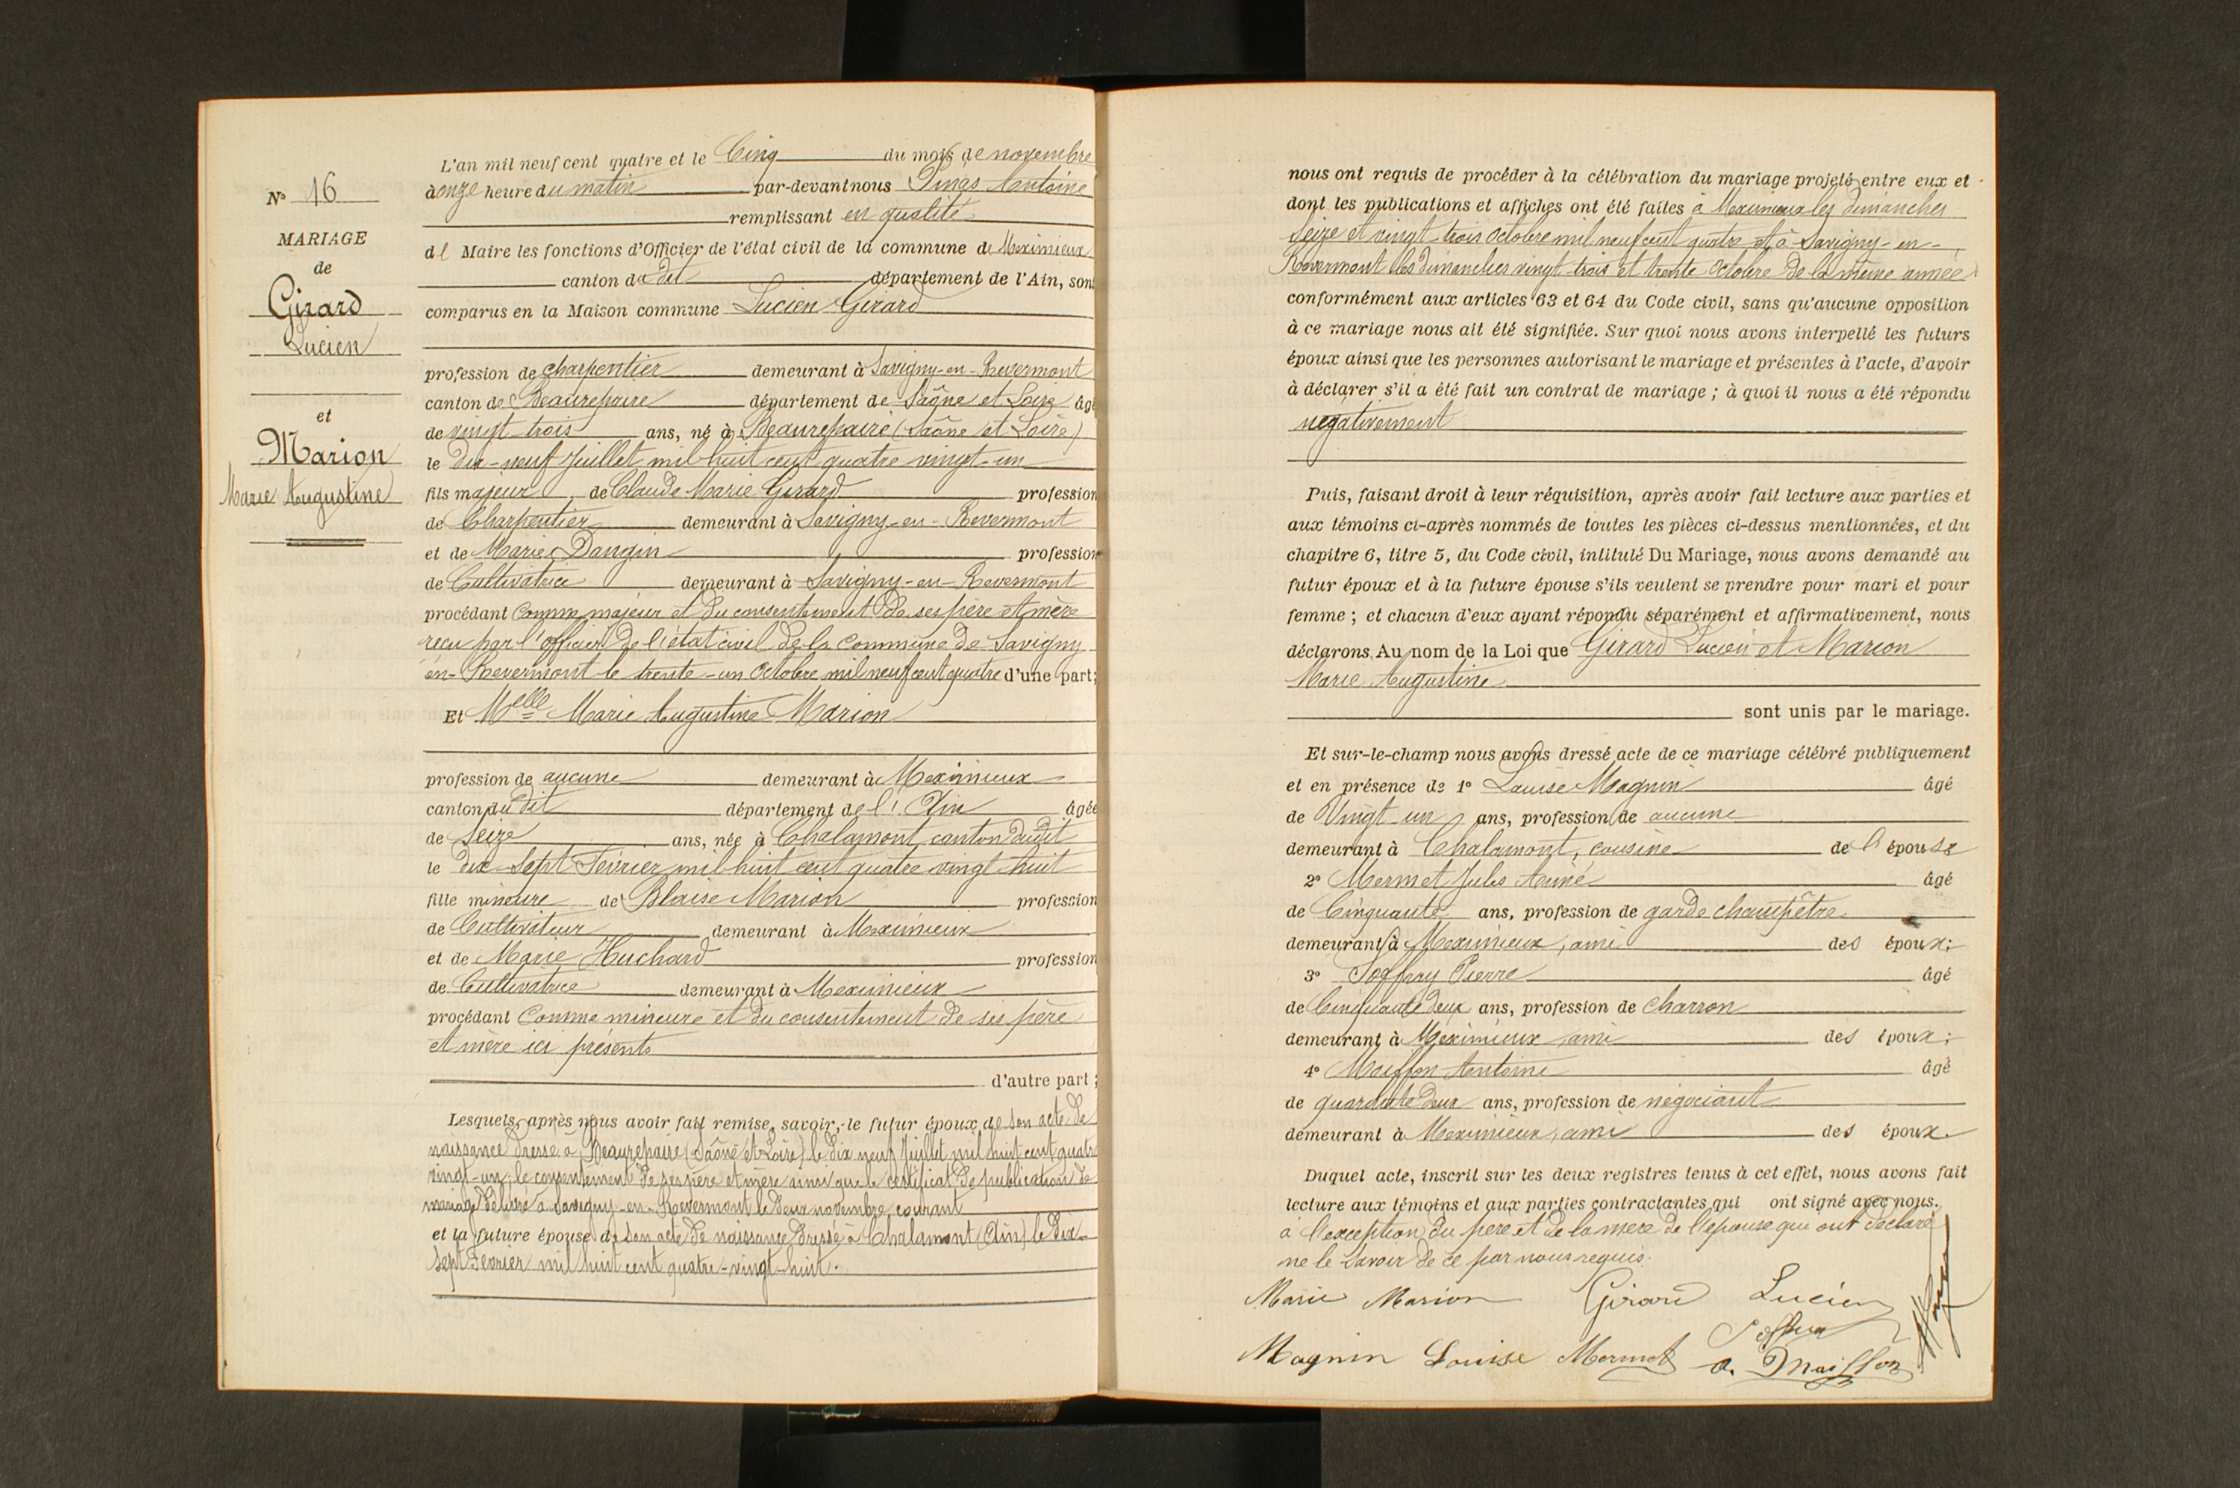 N° 16
MARIAGE
de
Girard
Lucien
et
Marion
Marie Augustine
L'an mil neuf cent quatre et le Cinq du mois de novembre
à onze heure du matin par-devant nous Pings Antoine
remplissant en qualité
de Maire les fonctions d'Officier de l'état civil de la commune de Meximieux
canton du dit département de l'Ain, sont
comparus en la Maison commune Lucien Girard
profession de charpentier demeurant à Savigny-en-Revermont
canton de Beaurepaire département de Saône et Loire âgé
de vingt-trois ans, né à Beaurepaire (Saône et Loire)
le dix-neuf Juillet mil huit cent quatre vingt-un
fils majeur de Claude Marie Girard profession
de Charpentier demeurant à Savigny-en-Revermont
et de Marie Dangin profession
de Cultivatrice demeurant à Savigny-en-Revermont
procédant comme majeur et du consentement de ses père et mère
reçu par l'officier de l'état civil de la commune de Savigny
en-Revermont le trente-un Octobre mil neuf cent quatre d'une part;
Et Melle Marie Augustine Marion
profession de aucune demeurant à Meximieux
canton du dit département de l'Ain âgée
de seize ans, née à Chalamont canton dudit
le dix-sept Février mil huit cent quatre vingt-huit
fille mineure de Blaise Marion profession
de Cultivateur demeurant à Meximieux
et de Marie Huchard profession
de Cultivatrice demeurant à Meximieux
procédant comme mineure et du consentement de ses père
et mère ici présents
d'autre part;
Lesquels, après nous avoir fait remise, savoir, le futur époux de son acte de
naissance dressé à Beaurepaire (Saône et Loire) le dix neuf Juillet mil huit cent quatre
vingt-un; le consentement de ses père et mère ainsi que le certificat de publication de
mariage délivré à Savigny-en-Revermont le deux novembre courant
et la future épouse de son acte de naissance dressé à Chalamont (Ain) le dix-
sept Février mil huit cent quatre-vingt-huit.
nous ont requis de procéder à la célébration du mariage projeté entre eux et
dont les publications et affiches ont été faites à Meximieux les dimanches
seize et vingt-trois Octobre mil neuf cent quatre et à Savigny-en-
Revermont les dimanches vingt trois et trente Octobre de la même année
conformément aux articles 63 et 64 du Code civil, sans qu'aucune opposition
à ce mariage nous ait été signifiée. Sur quoi nous avons interpellé les futurs
époux ainsi que les personnes autorisant le mariage et présentes à l'acte, d'avoir
à déclarer s'il a été fait un contrat de mariage; à quoi il nous a été répondu
négativement
Puis, faisant droit à leur réquisition, après avoir fait lecture aux parties et
aux témoins ci-après nommés de toutes les pièces ci-dessus mentionnées, et du
chapitre 6, titre 5, du Code civil, intitulé Du Mariage, nous avons demandé au
futur époux et à la future épouse s'ils veulent se prendre pour mari et pour
femme; et chacun d'eux ayant répondu séparément et affirmativement, nous
déclarons Au nom de la Loi que Girard Lucien et Marion
Marie Augustine
sont unis par le mariage.
Et sur-le-champ nous avons dressé acte de ce mariage célébré publiquement
et en présence de 1° Louise Magnin âgé
de Vingt-un ans, profession de aucune
demeurant à Chalamont, cousine de l'épouse
2° Mermet Jules Aimé âgé
de Cinquante ans, profession de garde champêtre
demeurant à Meximieux, ami des époux;
3° Joffray Pierre âgé
de Cinquante deux ans, profession de charron
demeurant à Meximieux, ami des époux;
4° Maiffon Antoine âgé
de quarante deux ans, profession de négociant
demeurant à Meximieux, ami des époux.
Duquel acte, inscrit sur les deux registres tenus à cet effet, nous avons fait
lecture aux témoins et aux parties contractantes qui ont signé avec nous.
à l'exception du père et de la mère de l'épouse qui ont déclaré
ne le savoir de ce par nous requis.
Marie Marion Girard Lucien
Magnin Louise Mermet a. Maiffon